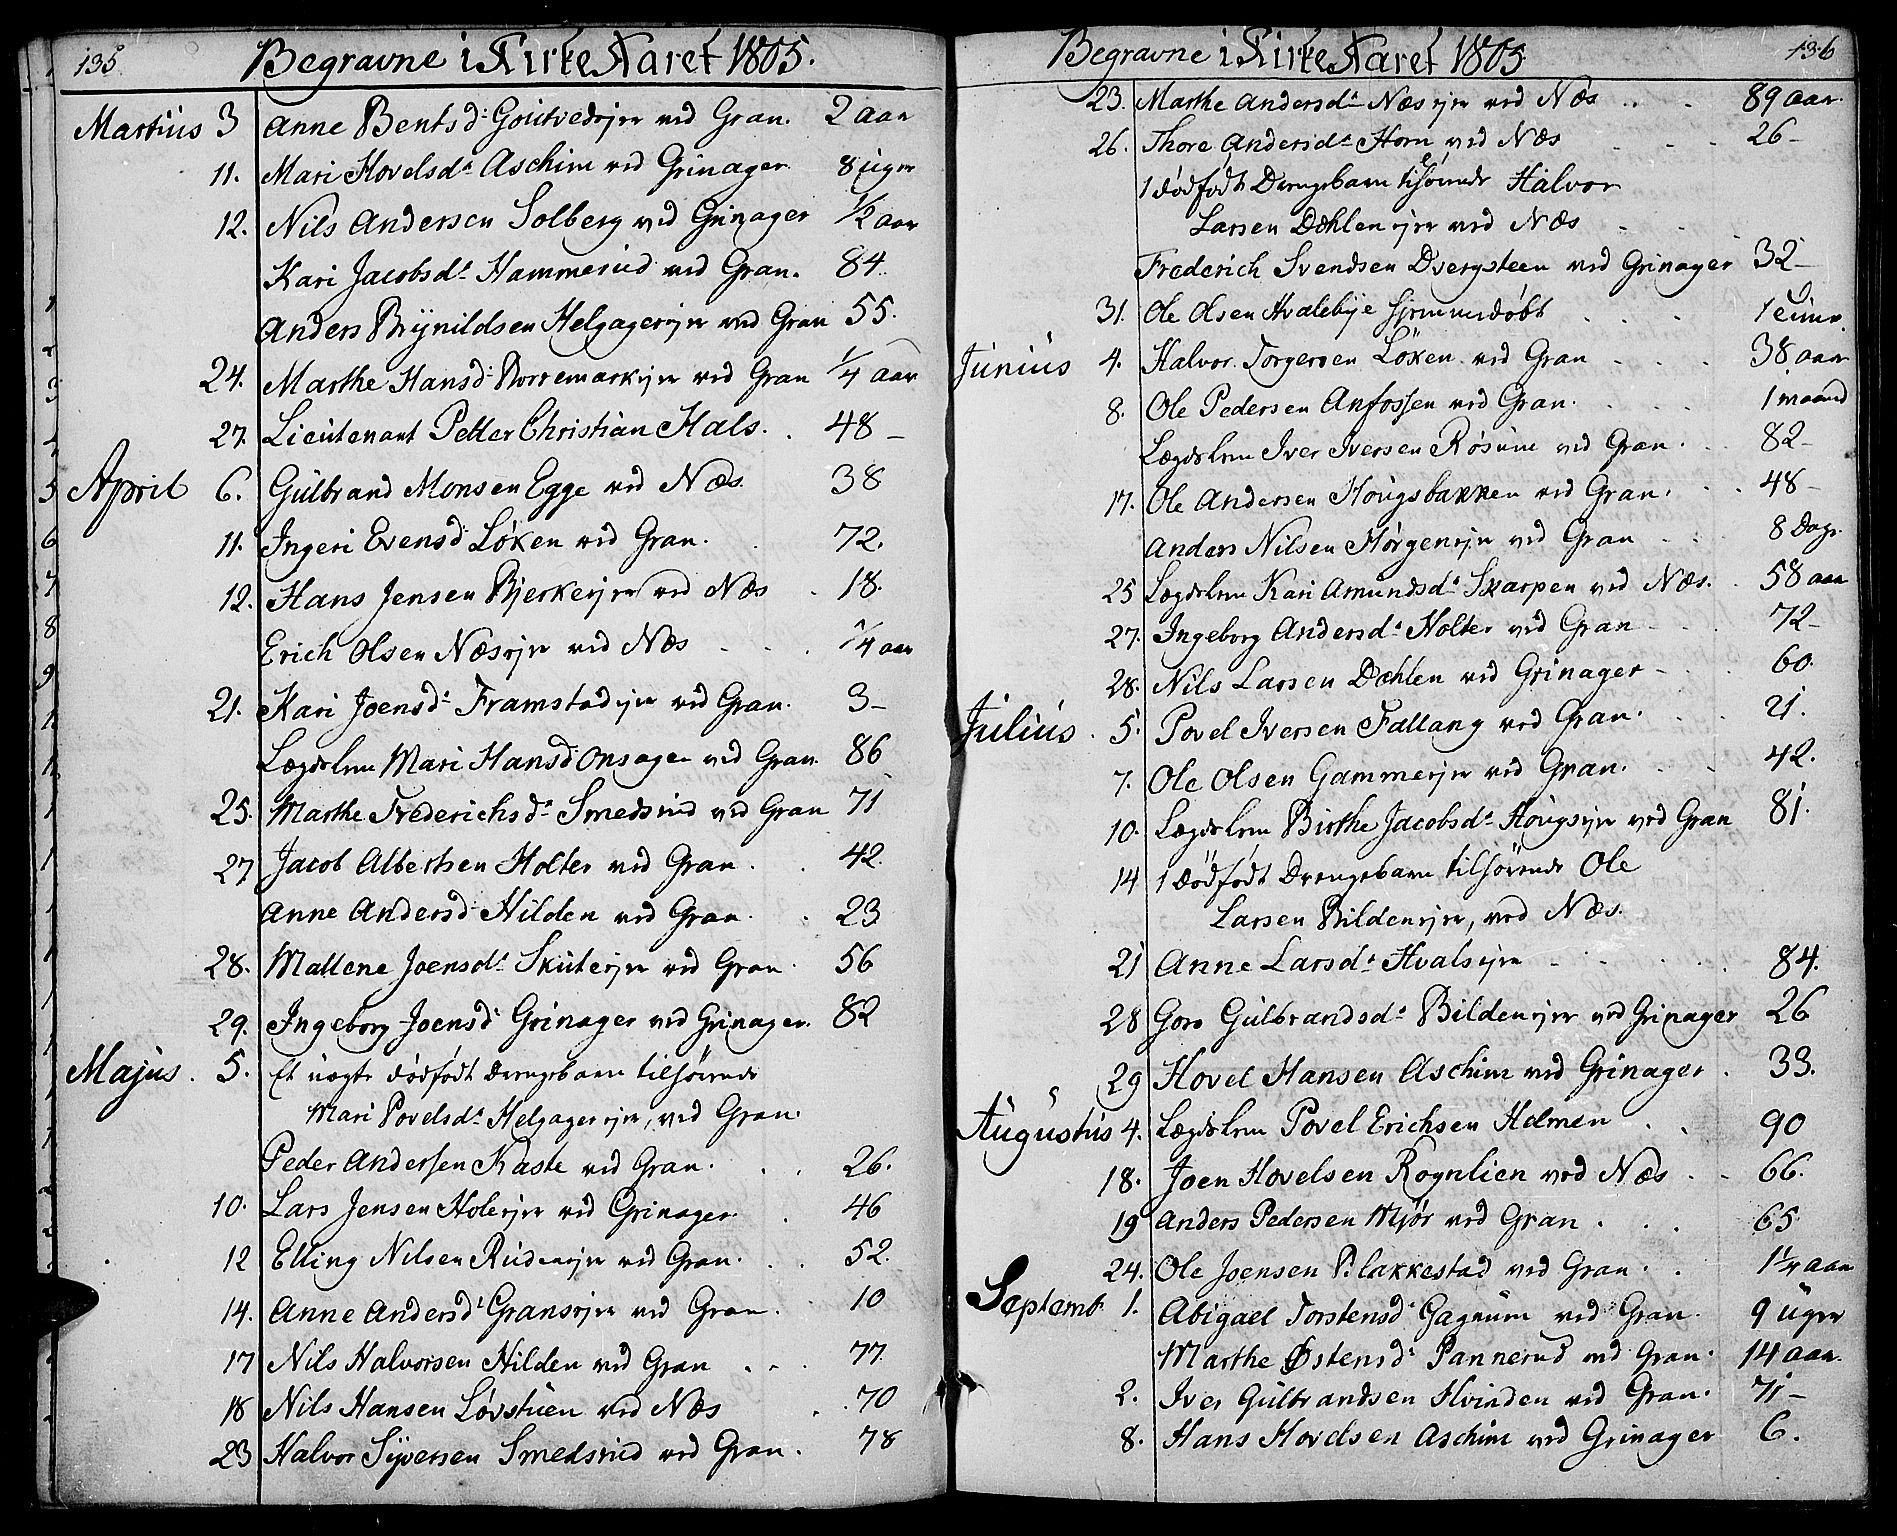 135.
Begravne i Kirke Aaret 1805.
Martius 3 Anne Bentsd: Goutvedejer ved Gran. 2 aar
11. Mari Hovelsd: Aschim ved Grinager 8 uger
12. Nils Andersen Solberg ved Grinager 1/2 aar
Kari Jacobsd: Hammerud ved Gran. 84.
Anders Brynildsen Helgagerejer ved Gran 55.
24. Marthe Hansd: Norremarkejer ved Gran 1/4 aar
27. Lieutenant Petter Christian Hals. 48 -
April 6. Gulbrand Monsen Egge ved Næs 38
11. Ingeri Evensd: Løken ved Gran. 72.
12. Hans Jensen Bjerkeejer ved Næs 18.
Erich Olsen Næsejer ved Næs 1/4 aar
21. Kari Joensd: Framstadejer ved Gran. 3 -
Lægdslem Mari Hansd: Onsager ved Gran. 86
25. Marthe Frederichsd: Smedsrud ved Gran 71
27 Jacob Albertsen Holter ved Gran. 42.
Anne Andersd: Hilden ved Gran. 23
28. Mallene Joensd: Skuteejer ved Gran. 56
29. Ingeborg Joensd: Grinager ved Grinager. 82
Majus. 5. Et uægte dødfødt Drengebarn tilhørende
Mari Povelsd: Helgagerejer, ved Gran.
Peder Andersen Kaste ved Gran. 26.
10. Lars Jensen Holeejer ved Grinager. 46
12 Elling Nilsen Rudenejer ved Gran. 52.
14. Anne Andersd: Gransejer ved Gran. 10
17 Nils Halvorsen Hilden ved Gran 77.
18 Nils Hansen Løvstuen ved Næs 70
23 Halvor Syversen Smedsrud ved Gran. 78
136
Begravne i Kirke Aaret 1805
23. Marthe Andersd: Næsejer ved Næs 89 aar.
26. Thore Andersd: Horn ved Næs 26 -
1 dødfødt Drengebarn tilhørende Halvor
Larsen Dæhlenejer ved Næs
Frederich Svendsen Dvergsteen ved Grinager 32 -
31. Ole Olsen Hvalebye hjemmedøbt 1
Junius 4. Halvor Torgersen Løken ved Gran 38 aar
8. Ole Pedersen Anfossen ved Gran. 1 maaned
Lægdslem Iver Iversen Røsum ved Gran. 82 -
17. Ole Andersen Hougsbakken ved Gran. 48 -
Anders Nilsen Hørgenejer ved Gran 8 Dage
25 Lægdslem Kari Amundsd: Skarpen ved Næs. 58 aar
27. Ingeborg Andersd: Holter ved Gran 72 -
28. Nils Larsen Dæhlen ved Grinager 60.
Julius. 5. Povel Iversen Fallang ved Gran. 21.
7. Ole Olsen Gammeejer ved Gran. 42.
10. Lægdslem Birthe Jacobsd: Hougsejer ved Gran 81.
14 1 dødfødt Drengebarn tilhørende Ole
Larsen Bildenejer, ved Næs.
21 Anne Larsd: Hvalsejer 84.
28 Goro Gulbrandsd: Bildenejer ved Grinager 26
29 Hovel Hansen Aschim ved Grinager. 33.
Augustus 4. Lægdslem Povel Erichsen Helmen 90
18. Joen Hovelsen Rognlien ved Næs 66.
19 Anders Pedersen Mjør ved Gran. 65
24. Ole Joensen Blakkestad ved Gran. 1 1/4 aar
Septemb. 1. Abigael Torstensd: Gagnum ved Gran. 9 uger
Marthe Østensd: Pannerud ved Gran. 14 aar.
2. Iver Gulbrandsen Hvinden ved Gran. 71 -
8. Hans Hovelsen Aschim ved Grinager 6.